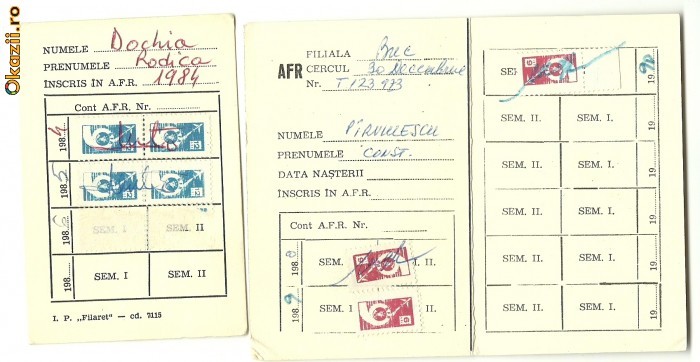 Okazii.ro
NUMELE Dochia
PRENUMELE Rodica
ÎNSCRIS ÎN A.F.R. 1984
Cont A.F.R. Nr.
1984
1985
198
SEM. I SEM. II
198
SEM. I SEM. II
I. P. „Filaret" — cd. 7115
AFR
FILIALA Buc
CERCUL 30 Decembrie
Nr. T123973
NUMELE Pîrvulescu
PRENUMELE CONST.
DATA NAȘTERII
ÎNSCRIS ÎN A.F.R.
Cont A.F.R. Nr.
198
I. II.
1989
SEM. I II.
SEM
1990
SEM. II. SEM. I.
19
SEM. II. SEM. I.
19
SEM. II. SEM. I.
19
SEM. II. SEM. I.
19
SEM. II. SEM. I.
19